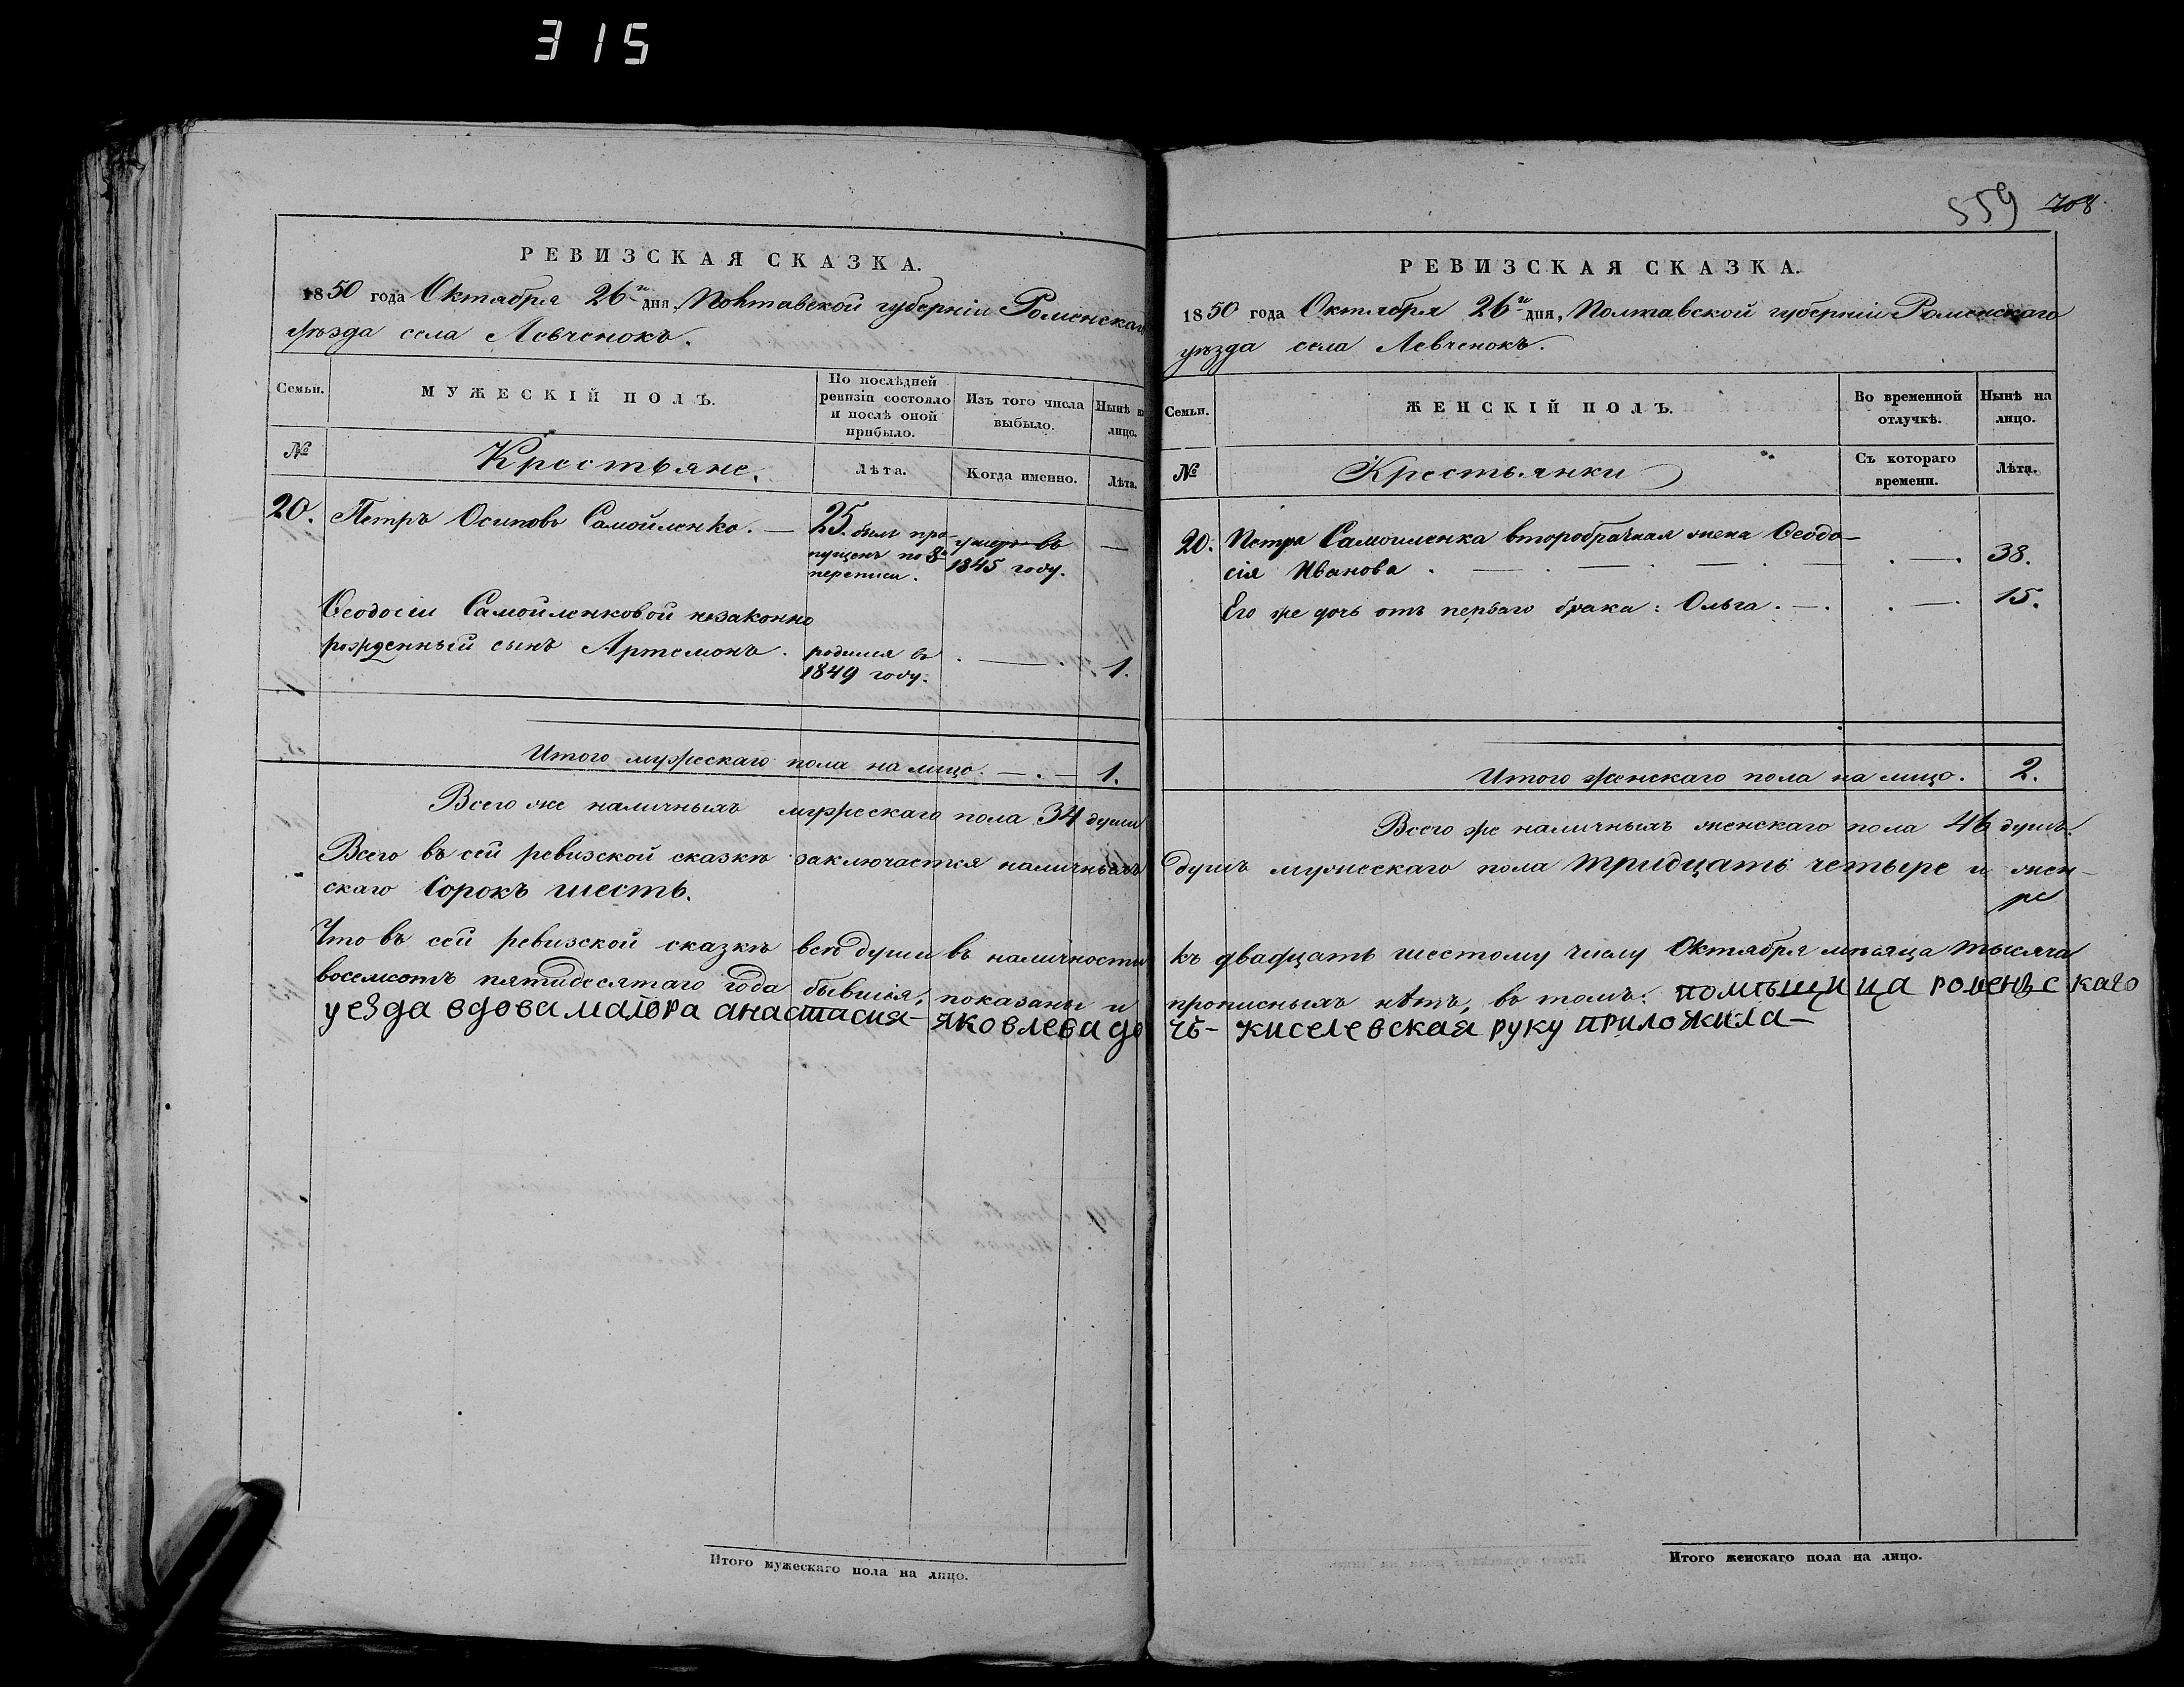 315
РЕВИЗСКАЯ СКАЗКА.
1850 года Октября 26го дня, Полтавской губерніи Роменскаго
уѣзда села Левченокъ.
Семьи.
МУЖЕСКІЙ ПОЛЪ.
По послѣдней
ревизіи состояло
и послѣ оной
прибыло.
Изъ того числа
выбыло.
Нынѣ на
лицо.
№
Крестьяне.
Лѣта.
Когда именно.
Лѣта.
20. Петръ Осиповъ Самойленко. — 25. былъ про- умеръ въ —
пущенъ по 8й 1845 году.
переписи.
Ѳеодосіи Самойленковой незаконно
рожденный сынъ Артемонъ. родился въ . — . 1.
1849 году.
Итого мужескаго пола на лицо. — . — 1.
Всего же наличныхъ мужескаго пола 34 души
559 708.
РЕВИЗСКАЯ СКАЗКА.
1850 года Октября 26го дня, Полтавской губерніи Роменскаго
уѣзда села Левченокъ.
Семьи.
ЖЕНСКІЙ ПОЛЪ.
Во временной
отлучкѣ.
Нынѣ на
лицо.
№
Крестьянки
Съ котораго
времени.
Лѣта.
20. Петра Самоиленка второбрачная жена Ѳеодо-
сія Иванова . — . — . — . — . 38.
Его же дочь отъ перваго брака: Ольга. — . . — . 15.
Итого женскаго пола на лицо. 2.
Всего же наличныхъ женскаго пола 46 душъ
Всего въ сей ревизской сказкѣ заключается наличныхъ душъ мужескаго пола тридцать четыре и жен-
скаго Сорокъ шесть.
Что въ сей ревизской сказкѣ всѣ души въ наличности къ двадцать шестому числу Октября мѣсяца тысяча
восемсотъ пятидесятаго года бывшія, показаны и прописныхъ нѣтъ, въ томъ: помѣщица роменъскаго
уезда вдова маіора анастасия яковлева дочь киселевская руку приложила
Итого мужескаго пола на лицо.
Итого женскаго пола на лицо.